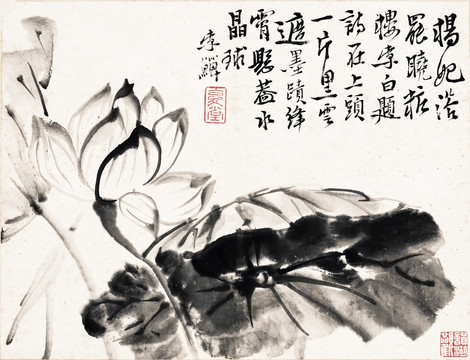 楊妃浴
罷曉粧
樓李白題
詩在上頭
一片黑雲
遮墨蹟絳
霄懸蓋水
晶球
李鱓